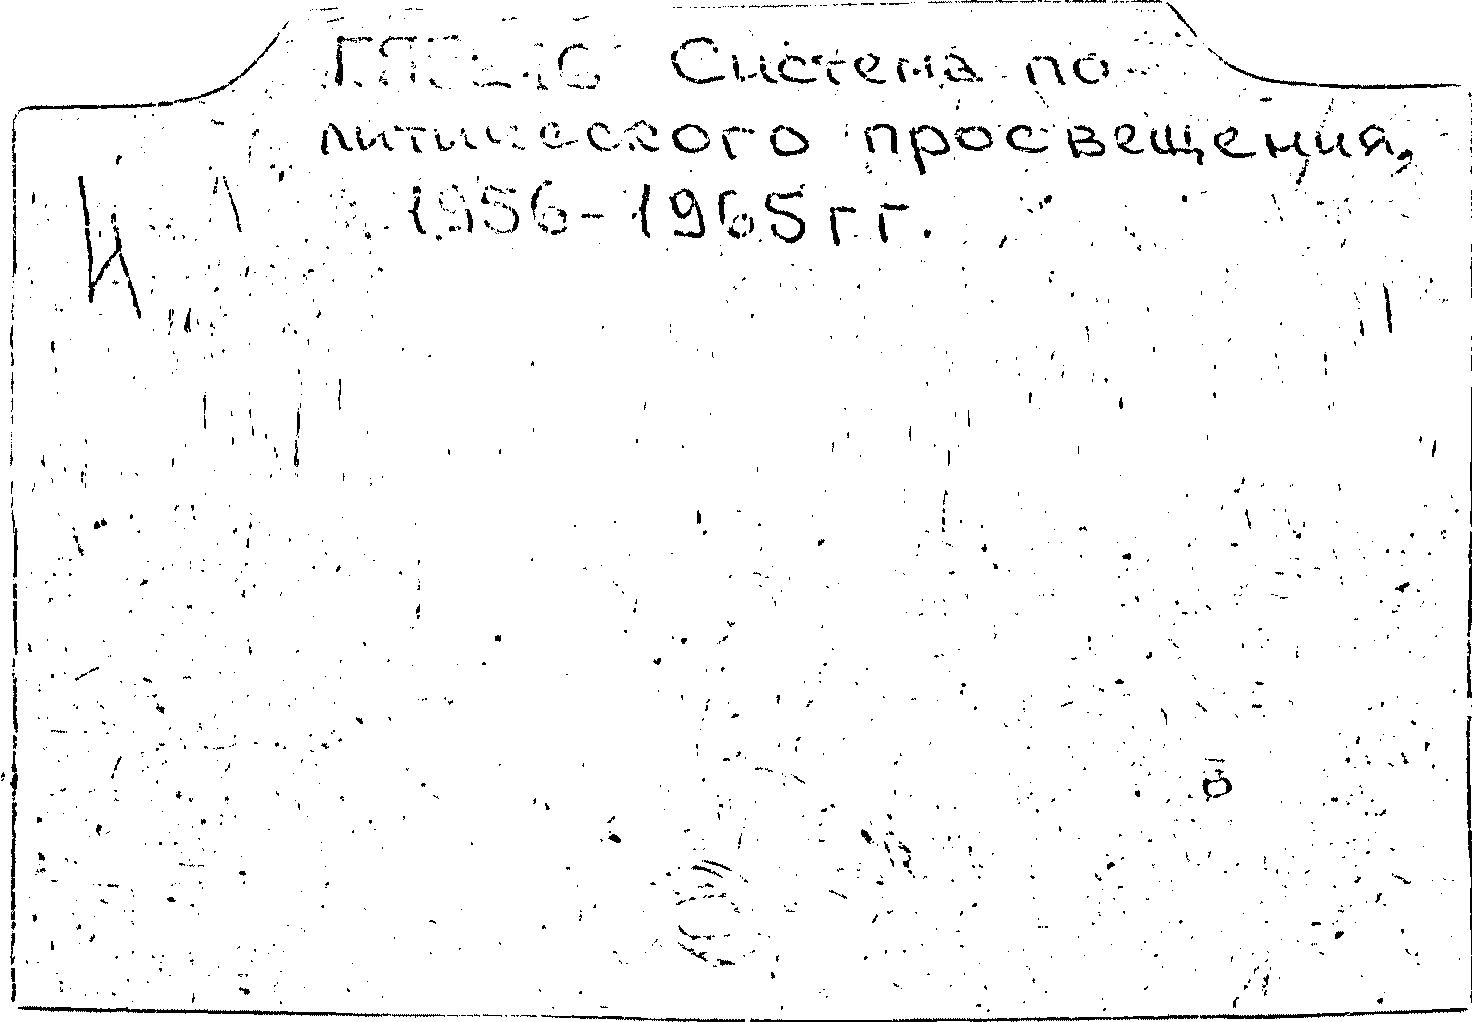 Система по-
литического просвещения,
1956-1965 гг.
И